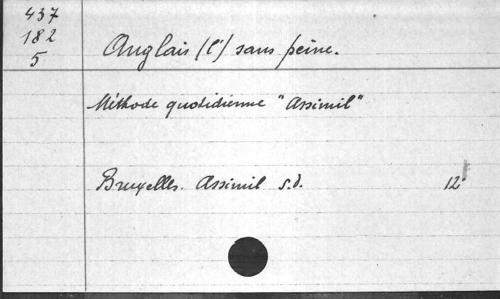 437
182
5
Anglais (l') sans peine.
Méthode quotidienne "Assimil"
Bruxelles. Assimil s.d. 12°